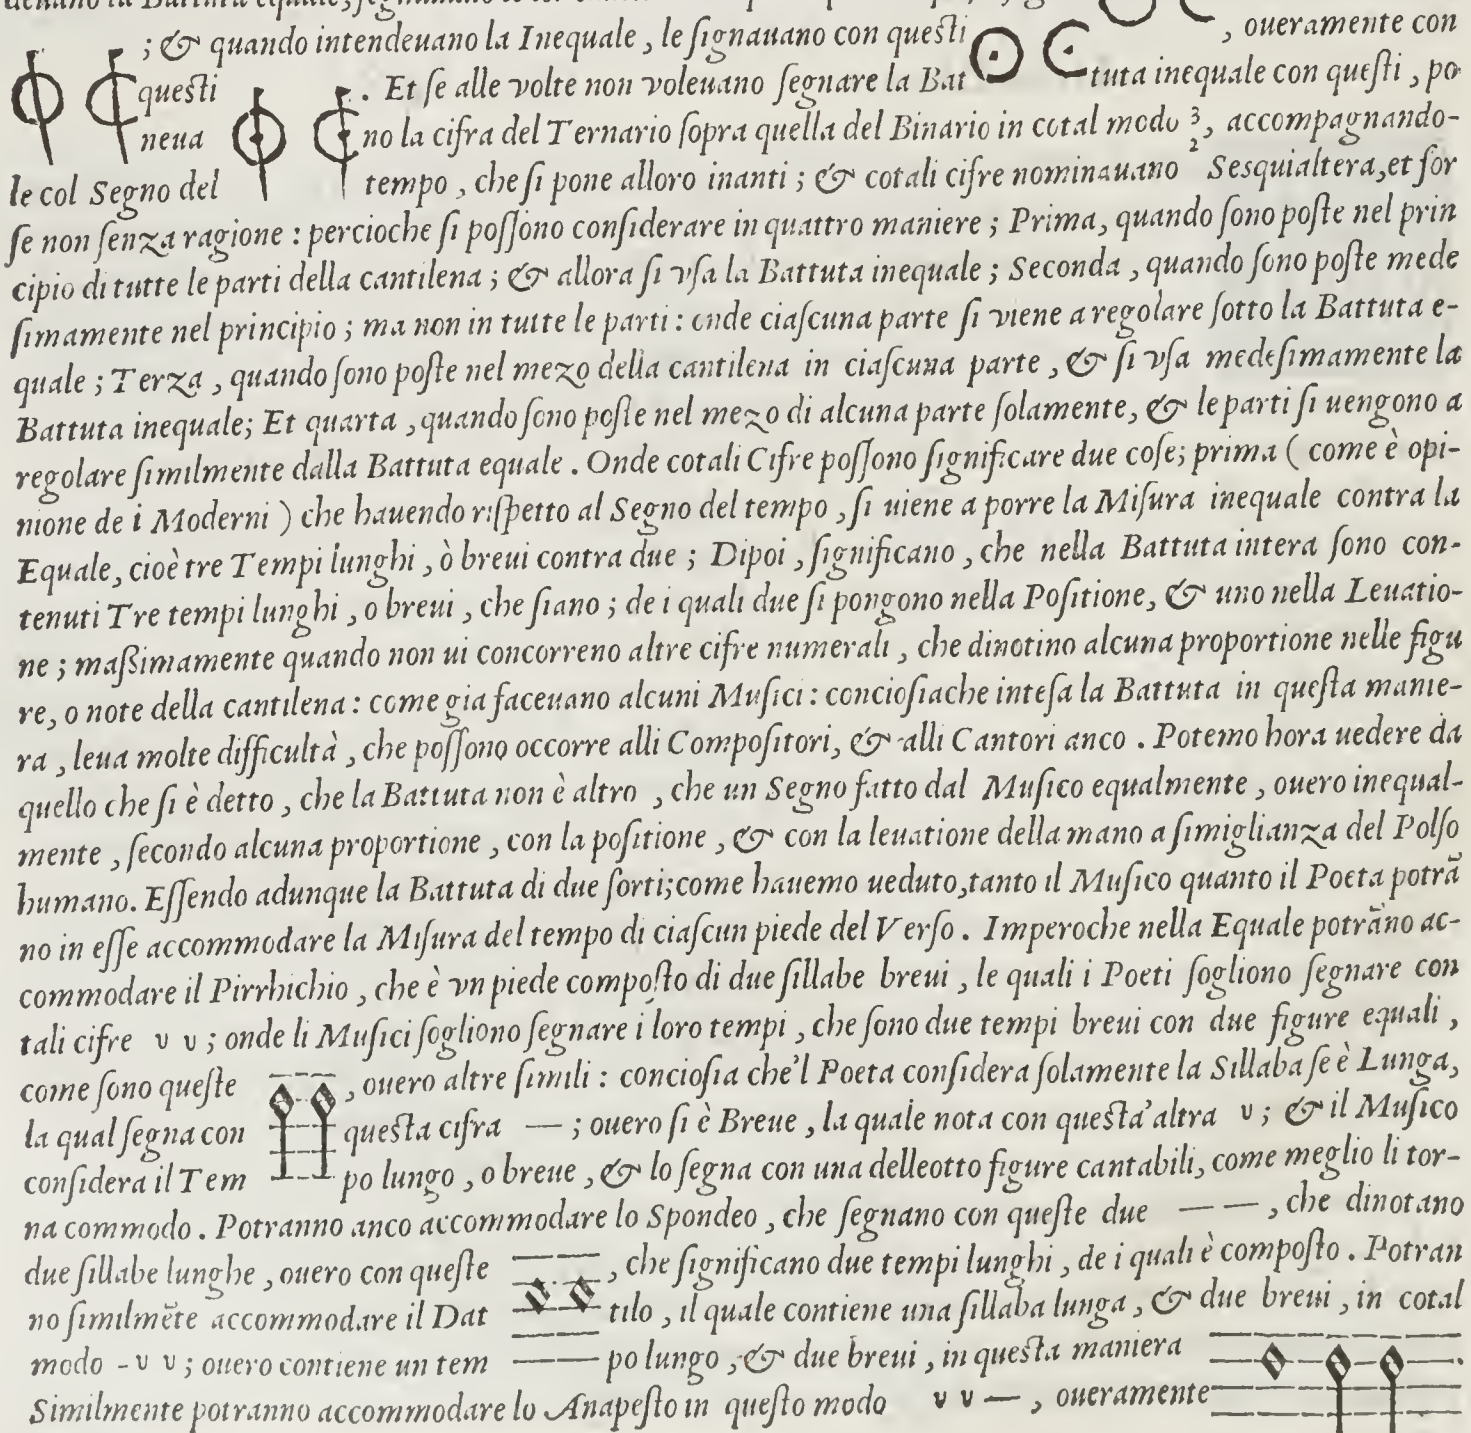 ; & quando intendeuano la Inequale, le ſignauano con queſti , oueramente con
queſti . Et ſe alle volte non voleuano ſegnare la Bat tuta inequale con queſti, po
neua no la cifra del Ternario ſopra quella del Binario in cotal modo 3/2, accompagnando-
le col Segno del tempo, che ſi pone alloro inanti; & cotali cifre nominauano Sesquialtera, et for
ſe non ſenza ragione: percioche ſi poſſono conſiderare in quattro maniere; Prima, quando ſono poſte nel prin
cipio di tutte le parti della cantilena; & allora ſi vſa la Battuta inequale; Seconda, quando ſono poſte mede
ſimamente nel principio; ma non in tutte le parti: onde ciaſcuna parte ſi viene a regolare ſotto la Battuta e-
quale; Terza, quando ſono poſte nel mezo della cantilena in ciaſcuna parte, & ſi vſa medeſimamente la
Battuta inequale; Et quarta, quando ſono poſte nel mezo di alcuna parte ſolamente, & le parti ſi uengono a
regolare ſimilmente dalla Battuta equale. Onde cotali Cifre poſſono ſignificare due coſe; prima (come è opi-
nione de i Moderni) che hauendo riſpetto al Segno del tempo, ſi uiene a porre la Miſura inequale contra la
Equale, cioè tre Tempi lunghi, ò breui contra due; Dipoi, ſignificano, che nella Battuta intera ſono con-
tenuti Tre tempi lunghi, o breui, che ſiano; de i quali due ſi pongono nella Poſitione, & uno nella Leuatio-
ne; maßimamente quando non ui concorreno altre cifre numerali, che dinotino alcuna proportione nelle figu
re, o note della cantilena: come gia faceuano alcuni Muſici: concioſiache inteſa la Battuta in queſta manie-
ra, leua molte difficultà, che poſſono occorre alli Compoſitori, & alli Cantori anco. Potemo hora uedere da
quello che ſi è detto, che la Battuta non è altro, che un Segno fatto dal Muſico equalmente, ouero inequal-
mente, ſecondo alcuna proportione, con la poſitione, & con la leuatione della mano a ſimiglianza del Polſo
humano. Eſſendo adunque la Battuta di due ſorti; come hauemo ueduto, tanto il Muſico quanto il Poeta potrã
no in eſſe accommodare la Miſura del tempo di ciaſcun piede del Verſo. Imperoche nella Equale potrãno ac-
commodare il Pirrhichio, che è vn piede compoſto di due ſillabe breui, le quali i Poeti ſogliono ſegnare con
tali cifre v v; onde li Muſici ſogliono ſegnare i loro tempi, che ſono due tempi breui con due figure equali,
come ſono queſte , ouero altre ſimili: concioſia che'l Poeta conſidera ſolamente la Sillaba ſe è Lunga,
la qual ſegna con queſta cifra —; ouero ſi è Breue, la quale nota con queſta'altra v; & il Muſico
conſidera il Tem po lungo, o breue, & lo ſegna con una delle otto figure cantabili, come meglio li tor-
na commodo. Potranno anco accommodare lo Spondeo, che ſegnano con queſte due — —, che dinotano
due ſillabe lunghe, ouero con queſte , che ſignificano due tempi lunghi, de i quali è compoſto. Potran
no ſimilmẽte accommodare il Dat tilo, il quale contiene una ſillaba lunga, & due breui, in cotal
modo - v v; ouero contiene un tem po lungo, & due breui, in queſta maniera .
Similmente potranno accommodare lo Anapeſto in queſto modo v v —, oueramente